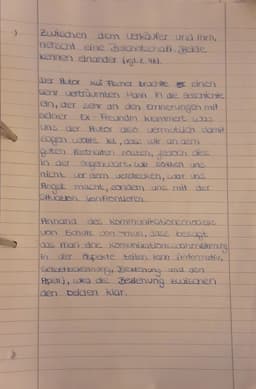 Zwischen dem Verkäufer und ihm,
herrscht eine Bekanntschaft. Beide
kennen einander (vgl. Z.
Der Autor brachte einen
sehr verträumten Mann in die Geschichte
ein, der sehr an den Erinnerungen mit
seiner Ex-Freundin klammert. Was
uns der Autor also vermutlich damit
sagen wollte ist, dass wir an dem
guten festhalten sollten, jedoch dies
in der Gegenwart. Wir sollten uns
nicht vor dem verstecken, was uns
Angst macht, sondern uns mit der
Situation konfrontieren.
Anhand des Kommunikationsmodells
von Schulz von Thun, dass besagt
das man eine Kommunikationswahrnehmung
in vier Aspekte teilen kann (Information,
Selbstoffenbarung, Beziehung und den
Appell), wird die Beziehung zwischen
den beiden klar.